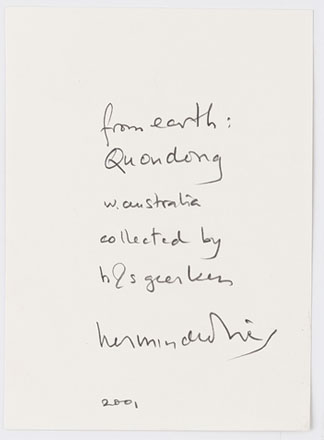 from earth:
Quondong
w. australia
collected by
h&s geerken
herman de vries
2001